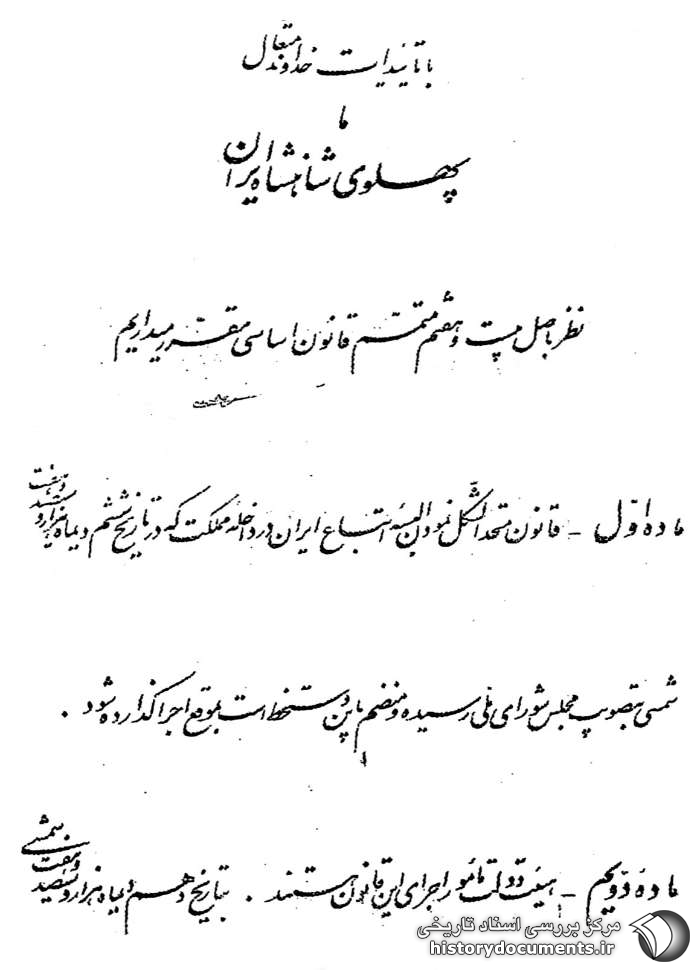 با تائیدات خداوند متعال
ما
پهلوی شاهنشاه ایران
نظر باصل بیست و هفتم متمم قانون اساسی مقرر میداریم
ماده اول - قانون متحدالشکل نمودن البسه اتباع ایران در داخله مملکت که در تاریخ ششم دیماه یکهزار و سیصد و هفت
شمسی بتصویب مجلس شورای ملی رسیده و منضم باین دستخط است بموقع اجرا گذارده شود .
ماده دویم - هیئت دولت مأمور اجرای این قانون هستند . بتاریخ دهم دیماه هزار و سیصد و هفت شمسی
مرکز بررسی اسناد تاریخی
historydocuments.ir